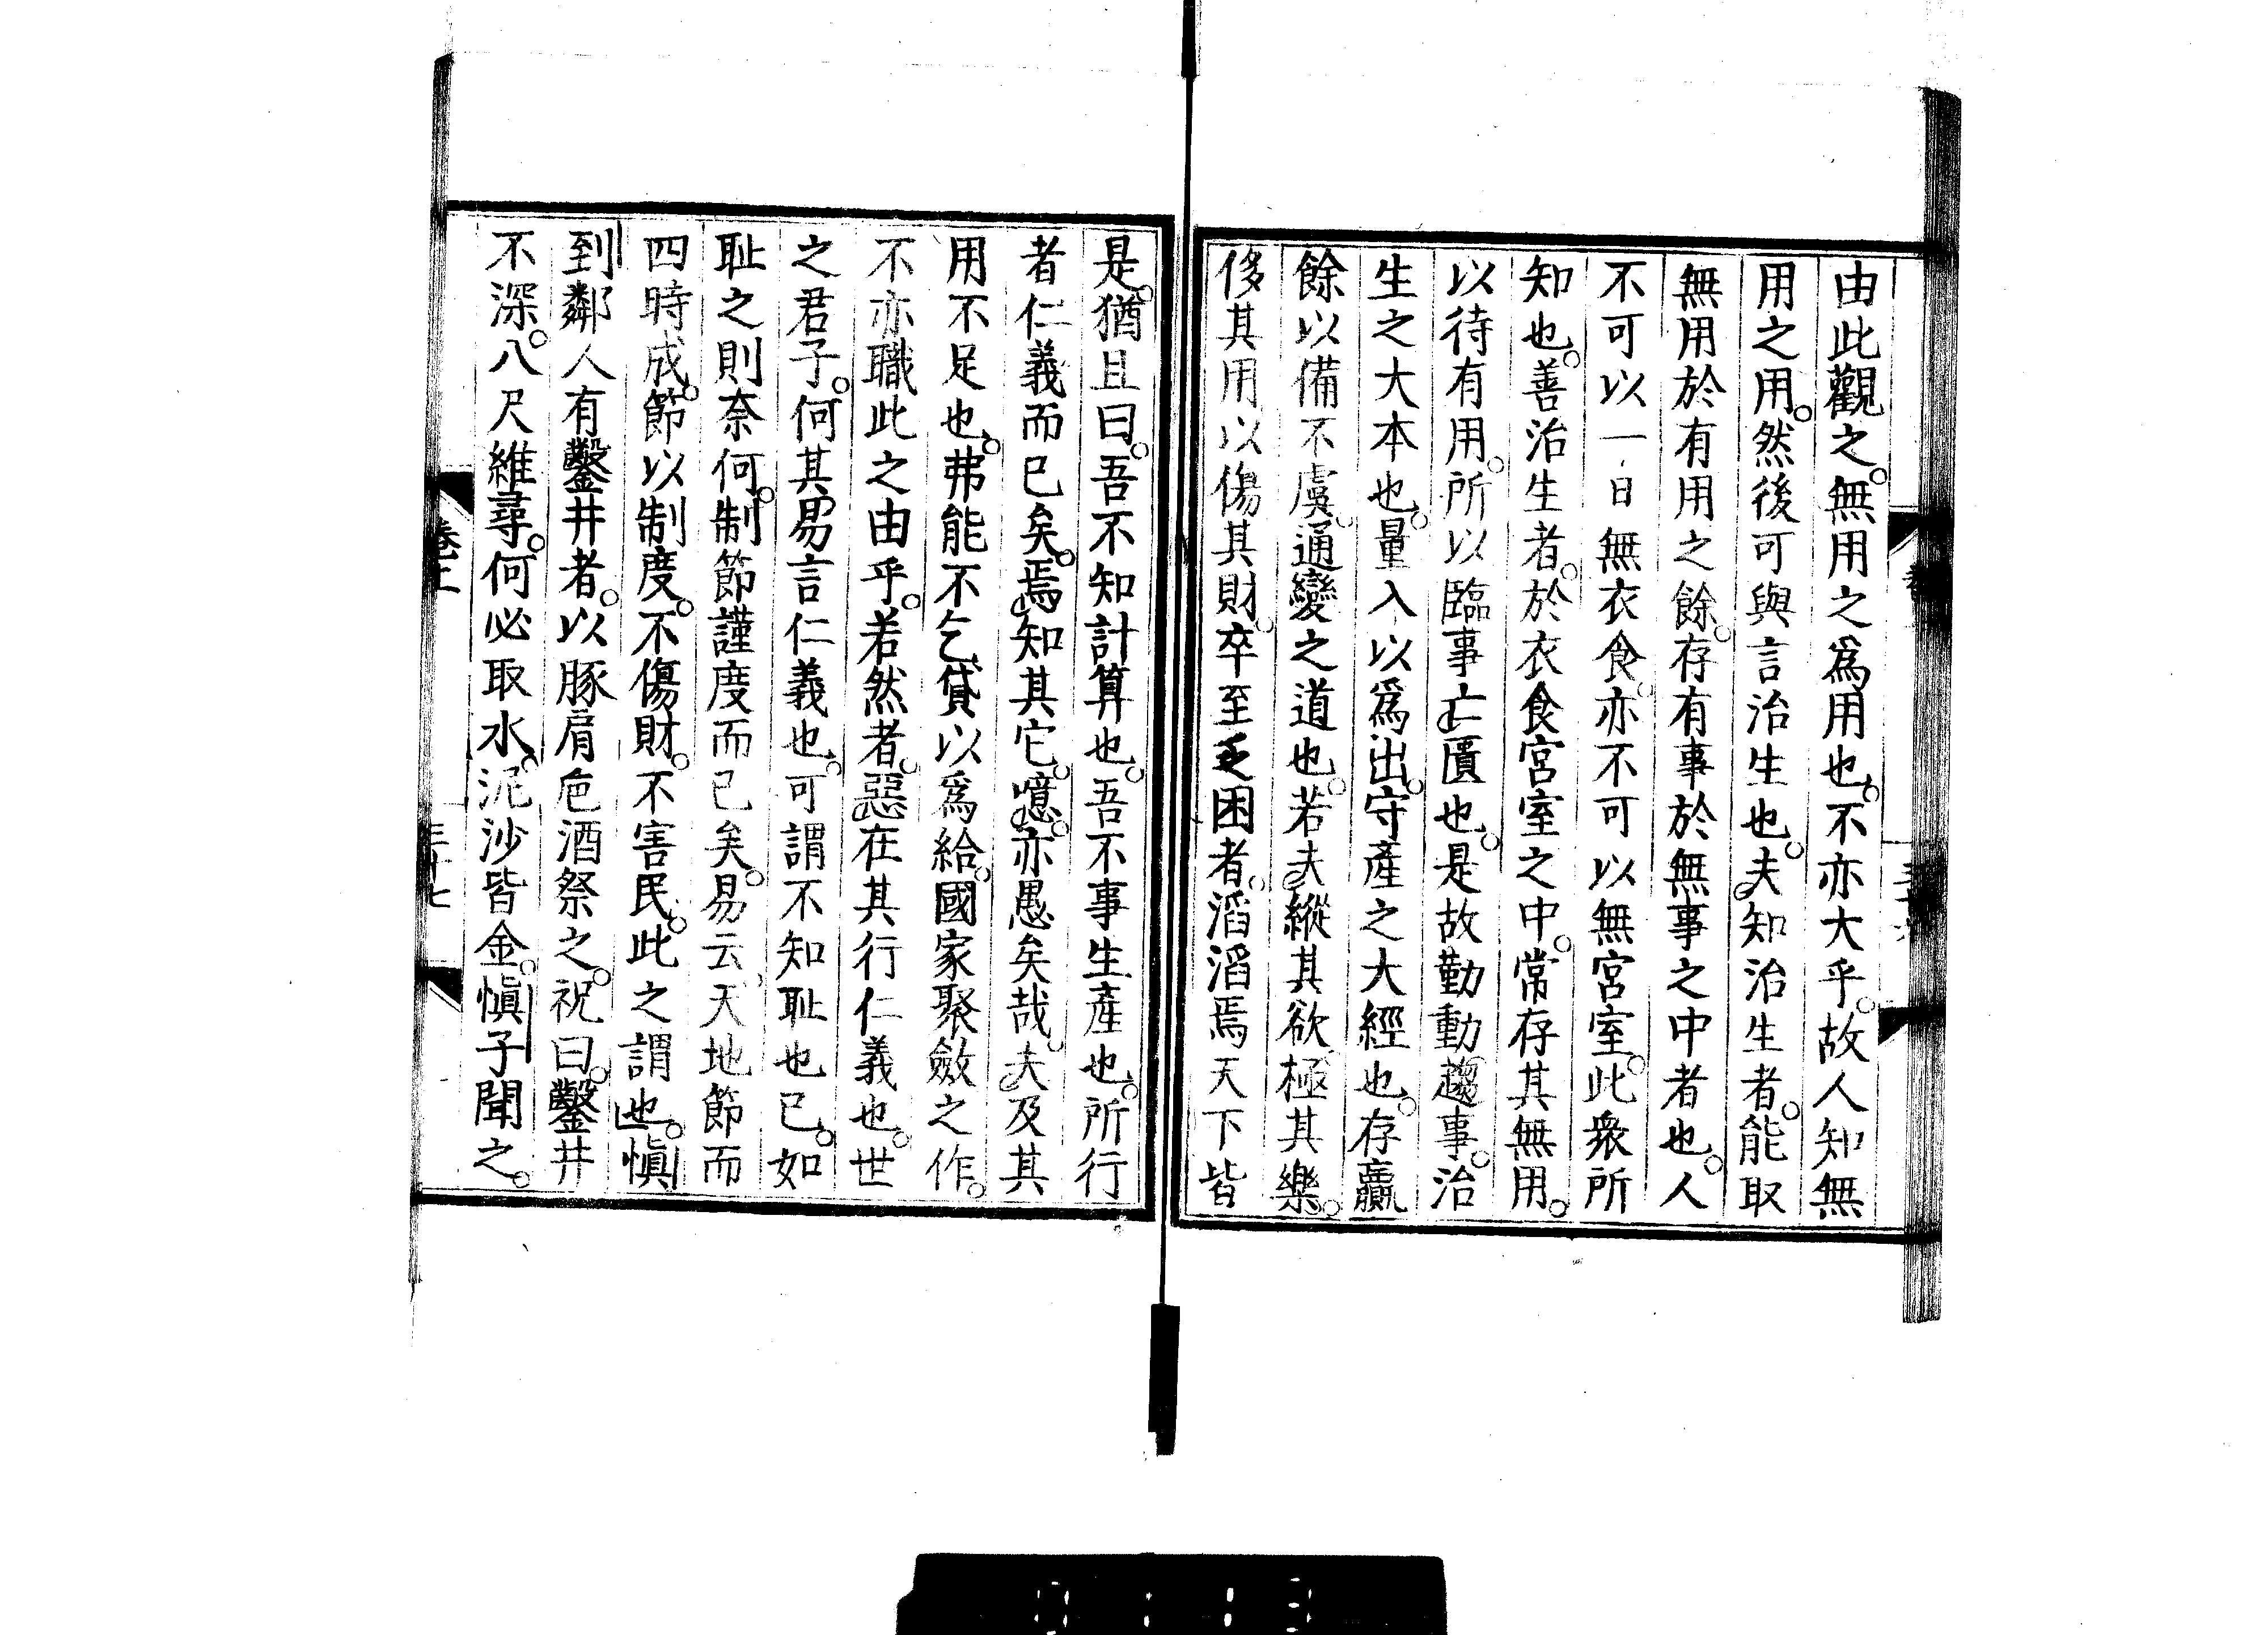 由此觀之。無用之爲用也。不亦大乎。故人知無
用之用。然後可與言治生也。夫知治生者。能取
無用於有用之餘。存有事於無事之中者也。人
不可以一日無衣食。亦不可以無宮室。此衆所
知也。善治生者。於衣食宮室之中。常存其無用。
以待有用。所以臨事亡匱也。是故勤動趨事。治
生之大本也。量入以爲出。守產之大經也。存贏
餘以備不虞。通變之道也。若夫縱其欲極其樂。
侈其用以傷其財。卒至乏困者。滔滔焉天下皆
是。猶且曰。吾不知計算也。吾不事生產也。所行
者仁義而已矣。焉知其它。噫。亦愚矣哉。夫及其
用不足也。弗能不乞貸以爲給。國家聚斂之作。
不亦職此之由乎。若然者。惡在其行仁義也。世
之君子。何其易言仁義也。可謂不知耻也已。如
耻之則奈何。制節謹度而已矣。易云、天地節而
四時成。節以制度。不傷財。不害民。此之謂也。愼
到鄰人有鑿井者。以豚肩卮酒祭之。祝曰。鑿井
不深。八尺維尋。何必取水。泥沙皆金。愼子聞之。
卷上
三十七